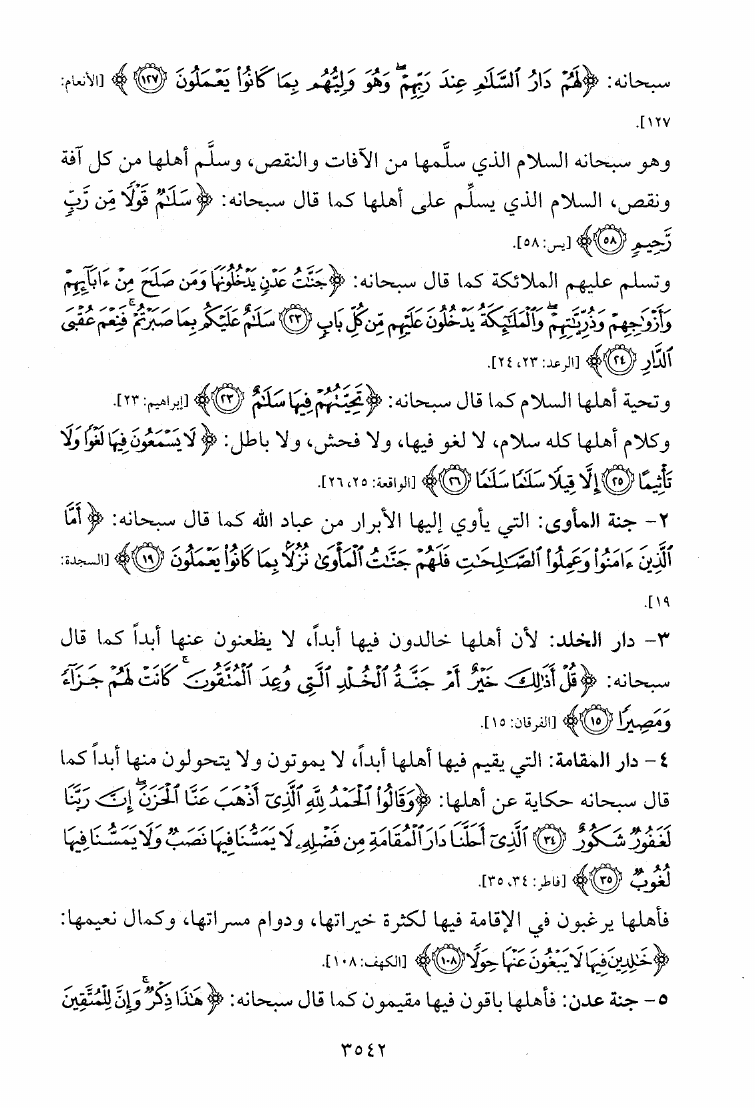 سبحانه: ﴿لَهُمْ دَارُ السَّلَامِ عِندَ رَبِّهِمْ ۖ وَهُوَ وَلِيُّهُم بِمَا كَانُوا۟ يَعْمَلُونَ ۝١٢٧﴾ [الأنعام:
١٢٧].
وهو سبحانه السلام الذي سلَّمها من الآفات والنقص، وسلَّم أهلها من كل آفة
ونقص، السلام الذي يسلِّم على أهلها كما قال سبحانه: ﴿سَلَٰمٌ قَوْلًا مِّن رَّبٍّ
رَّحِيمٍ ۝٥٨﴾ [يس: ٥٨].
وتسلم عليهم الملائكة كما قال سبحانه: ﴿جَنَّٰتُ عَدْنٍ يَدْخُلُونَهَا وَمَن صَلَحَ مِنْ ءَابَآئِهِمْ
وَأَزْوَٰجِهِمْ وَذُرِّيَّٰتِهِمْ ۖ وَٱلْمَلَٰٓئِكَةُ يَدْخُلُونَ عَلَيْهِم مِّن كُلِّ بَابٍ ۝٢٣ سَلَٰمٌ عَلَيْكُم بِمَا صَبَرْتُمْ ۚ فَنِعْمَ عُقْبَى
ٱلدَّارِ ۝٢٤﴾ [الرعد: ٢٣، ٢٤].
وتحية أهلها السلام كما قال سبحانه: ﴿تَحِيَّتُهُمْ فِيهَا سَلَٰمٌ ۝٢٣﴾ [إبراهيم: ٢٣].
وكلام أهلها كله سلام، لا لغو فيها، ولا فحش، ولا باطل: ﴿لَا يَسْمَعُونَ فِيهَا لَغْوًا وَلَا
تَأْثِيمًا ۝٢٥ إِلَّا قِيلًا سَلَٰمًا سَلَٰمًا ۝٢٦﴾ [الواقعة: ٢٥، ٢٦].
٢- جنة المأوى: التي يأوي إليها الأبرار من عباد الله كما قال سبحانه: ﴿أَمَّا
ٱلَّذِينَ ءَامَنُوا۟ وَعَمِلُوا۟ ٱلصَّٰلِحَٰتِ فَلَهُمْ جَنَّٰتُ ٱلْمَأْوَىٰ نُزُلًۢا بِمَا كَانُوا۟ يَعْمَلُونَ ۝١٩﴾ [السجدة:
١٩].
٣- دار الخلد: لأن أهلها خالدون فيها أبداً، لا يظعنون عنها أبداً كما قال
سبحانه: ﴿قُلْ أَذَٰلِكَ خَيْرٌ أَمْ جَنَّةُ ٱلْخُلْدِ ٱلَّتِى وُعِدَ ٱلْمُتَّقُونَ ۚ كَانَتْ لَهُمْ جَزَآءً
وَمَصِيرًا ۝١٥﴾ [الفرقان: ١٥].
٤- دار المقامة: التي يقيم فيها أهلها أبداً، لا يموتون ولا يتحولون منها أبداً كما
قال سبحانه حكاية عن أهلها: ﴿وَقَالُوا۟ ٱلْحَمْدُ لِلَّهِ ٱلَّذِىٓ أَذْهَبَ عَنَّا ٱلْحَزَنَ ۖ إِنَّ رَبَّنَا
لَغَفُورٌ شَكُورٌ ۝٣٤ ٱلَّذِىٓ أَحَلَّنَا دَارَ ٱلْمُقَامَةِ مِن فَضْلِهِۦ لَا يَمَسُّنَا فِيهَا نَصَبٌ وَلَا يَمَسُّنَا فِيهَا
لُغُوبٌ ۝٣٥﴾ [فاطر: ٣٤، ٣٥].
فأهلها يرغبون في الإقامة فيها لكثرة خيراتها، ودوام مسراتها، وكمال نعيمها:
﴿خَٰلِدِينَ فِيهَا لَا يَبْغُونَ عَنْهَا حِوَلًا ۝١٠٨﴾ [الكهف: ١٠٨].
٥- جنة عدن: فأهلها باقون فيها مقيمون كما قال سبحانه: ﴿هَٰذَا ذِكْرٌ ۚ وَإِنَّ لِلْمُتَّقِينَ
٣٥٤٢